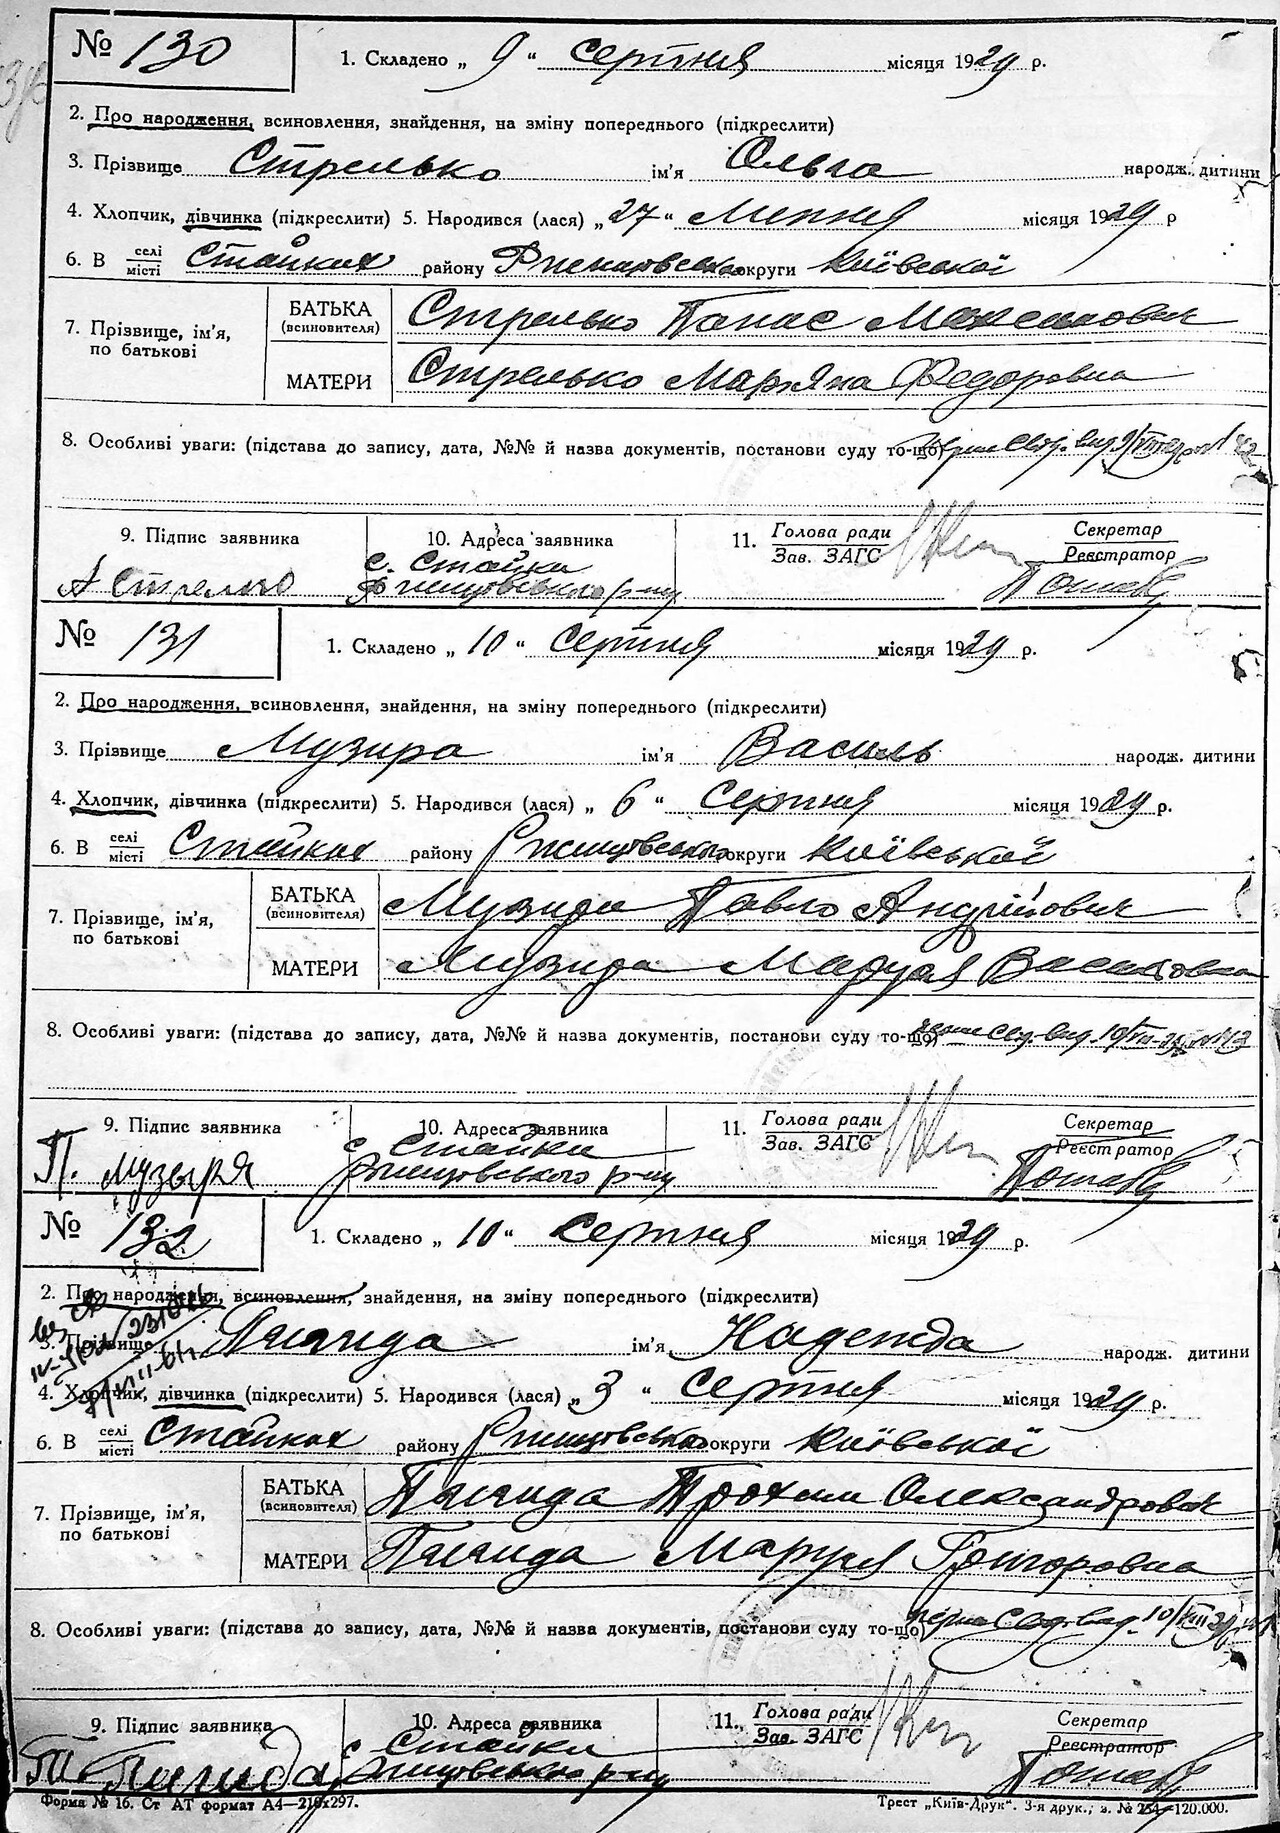 № 130 1. Складено „ 9 “ серпня місяця 1929 р.
2. Про народження, всиновлення, знайдення, на зміну попереднього (підкреслити)
3. Прізвище Стрелько ім'я Ольга народж. дитини
4. Хлопчик, дівчинка (підкреслити) 5. Народився (лася) „ 27 “ Липня місяця 1929 р
6. В селі місті Стайках району Ржищівсько округи Київської
7. Прізвище, ім'я, по батькові
БАТЬКА (всиновителя) Стрелько Панас Максимович
МАТЕРИ Стрелько Мар'яна Федоровна
8. Особливі уваги: (підстава до запису, дата, №№ й назва документів, постанови суду то-що)
9. Підпис заявника 10. Адреса заявника 11. Голова ради Зав. ЗАГС Секретар Реєстратор
А Стрелко с. Стайки
Ржищівського р-ну
№ 131 1. Складено „ 10 “ серпня місяця 1929 р.
2. Про народження, всиновлення, знайдення, на зміну попереднього (підкреслити)
3. Прізвище Музира ім'я Василь народж. дитини
4. Хлопчик, дівчинка (підкреслити) 5. Народився (лася) „ 6 “ серпня місяця 1929 р.
6. В селі місті Стайках району Ржищівського округи Київської
7. Прізвище, ім'я, по батькові
БАТЬКА (всиновителя) Музира Павло Андрійович
МАТЕРИ Музира Маруся
8. Особливі уваги: (підстава до запису, дата, №№ й назва документів, постанови суду то-що)
9. Підпис заявника 10. Адреса заявника 11. Голова ради Зав. ЗАГС Секретар Реєстратор
П. музыря с Стайки
Ржищівського р-ну
№ 132 1. Складено „ 10 “ серпня місяця 1929 р.
2. Про народження, всиновлення, знайдення, на зміну попереднього (підкреслити)
3. Прізвище Пигида ім'я Надежда народж. дитини
4. Хлопчик, дівчинка (підкреслити) 5. Народився (лася) „ 3 “ серпня місяця 1929 р.
6. В селі місті Стайках району Ржищівсько округи Київської
7. Прізвище, ім'я, по батькові
БАТЬКА (всиновителя) Пигида Трохим Олександрович
МАТЕРИ Пигида Маруся Григоровна
8. Особливі уваги: (підстава до запису, дата, №№ й назва документів, постанови суду то-що)
9. Підпис заявника 10. Адреса заявника 11. Голова ради Зав. ЗАГС Секретар Реєстратор
Т. Пигида с Стайки
Ржищівського р-ну
Форма № 16. Ст АТ формат А4—210х297. Трест „Київ-Друк“. 3-я друк., з. № 254—120.000.